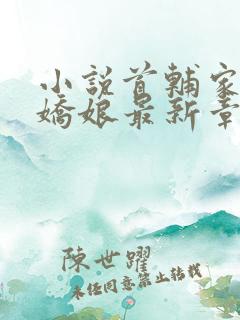 小說首輔家
嬌娘最新章
陳世躍
未经同意禁止转载